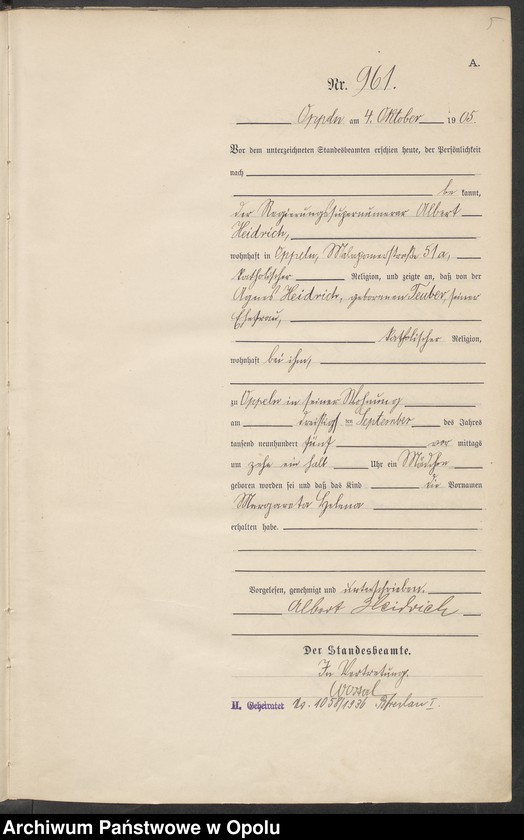 5
A.
Nr. 961.
Oppeln am 4. Oktober 1905.
Vor dem unterzeichneten Standesbeamten erschien heute, der Persönlichkeit
nach
be kannt,
der Regierungssupernumerar Albert
Heidrich,
wohnhaft in Oppeln, Malapanerstraße 51a,
katholischer Religion, und zeigte an, daß von der
Agnes Heidrich, geborenen Teuber, seiner
Ehefrau,
katholischer Religion,
wohnhaft bei ihm,
zu Oppeln in seiner Wohnung
am dreißigsten September des Jahres
tausend neunhundert fünf vor mittags
um zehn ein halb Uhr ein Mädchen
geboren worden sei und daß das Kind die Vornamen
Margareta Helena
erhalten habe.
Vorgelesen, genehmigt und unterschrieben.
Albert Heidrich
Der Standesbeamte.
In Vertretung.
H. Geheiratet Nr. 1050/1936 Breslau I.
Archiwum Państwowe w Opolu